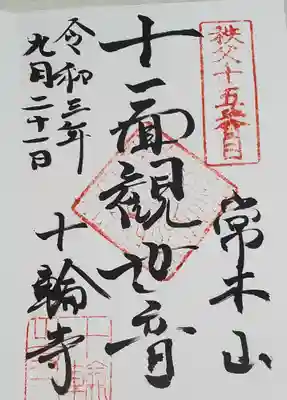 秩父十五番目
常木山
十一面觀世音
令和三年
九月二十一日
十輪寺